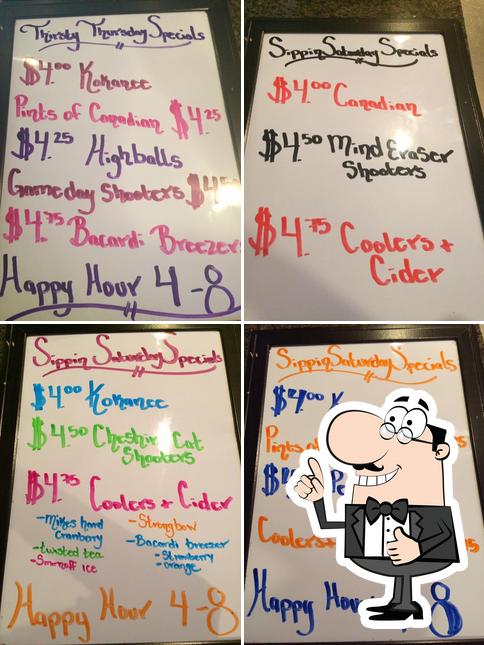 Thirsty Thursday Specials
$4.00 Kokanee
Pints of Canadian $4.25
$4.25 Highballs
Gameday Shooters $4.50
$4.75 Bacardi Breezer
Happy Hour 4-8
Sippin Saturday Specials
$4.00 Canadian
$4.50 Mind Eraser
Shooters
$4.75 Coolers +
Cider
Sippin Saturday Specials
$4.00 Kokanee
$4.50 Cheshire Cat
Shooters
$4.75 Coolers + Cider
-Mikes hard
Cranberry
-twisted tea
-Smirnoff ice
-Strongbow
-Bacardi breezer
-Strawberry
-orange
Happy Hour 4-8
Sippin Saturday Specials
$4.00 K
Pints
Coolers
Happy 8